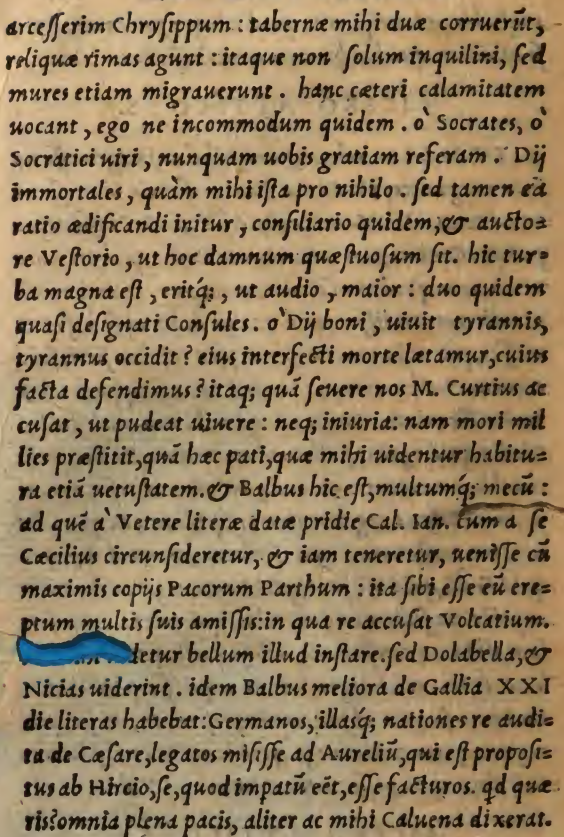 arceſſerim Chryſippum : tabernæ mihi duæ corruerūt,
reliquæ rimas agunt : itaque non ſolum inquilini, ſed
mures etiam migrauerunt . hanc cæteri calamitatem
uocant , ego ne incommodum quidem . o` Socrates, o`
Socratici uiri , nunquam uobis gratiam referam . Dij
immortales , quàm mihi iſta pro nihilo . ſed tamen ea
ratio ædificandi initur , conſiliario quidem, & aucto=
re Veſtorio , ut hoc damnum quæſtuoſum ſit. hic tur=
ba magna eſt , eritq́; , ut audio , maior : duo quidem
quaſi deſignati Conſules. o` Dij boni , uiuit tyrannis,
tyrannus occidit ? eius interfecti morte lætamur,cuius
facta defendimus ? itaq; quā ſeuere nos M. Curtius ac
cuſat , ut pudeat uiuere : neq; iniuria: nam mori mil
lies præſtitit,quā hæc pati,quæ mihi uidentur habitu=
ra etiā uetuſtatem. & Balbus hic eſt,multumq́; mecū :
ad quē a` Vetere literæ datæ pridie Cal. Ian. cum a ſe
Cæcilius circunſideretur, & iam teneretur, ueniſſe cū
maximis copijs Pacorum Parthum : ita ſibi eſſe eū ere=
ptum multis ſuis amiſſis:in qua re accuſat Volcatium.
detur bellum illud inſtare.ſed Dolabella,&
Nicias uiderint . idem Balbus meliora de Gallia XXI
die literas habebat:Germanos, illasq́; nationes re audi=
ta de Cæſare,legatos miſiſſe ad Aureliū,qui eſt propoſi=
tus ab Hircio,ſe,quod impatū eēt,eſſe facturos. qd quæ
ris?omnia plena pacis, aliter ac mihi Caluena dixerat.